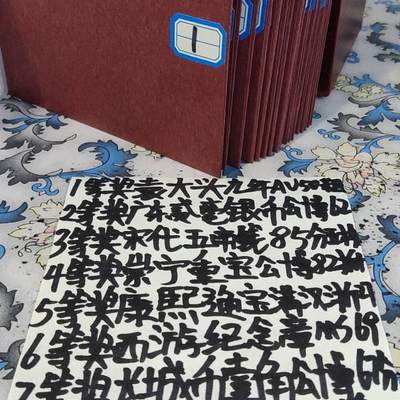 1
1等奖袁大头九年AU50
2等奖广东贰毫银币公博62
3等奖宋代五帝钱85分
4等奖崇宁重宝公博82
5等奖康熙通宝满汉
6等奖西游纪念章MS69
7等奖长城币壹角公博67分